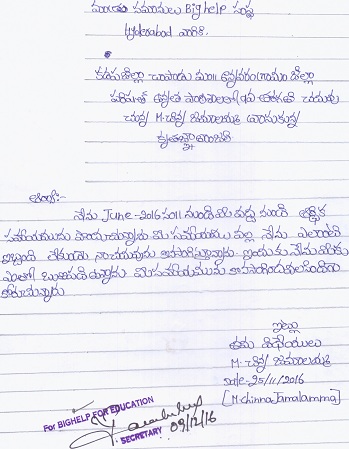 సమాజము Bighelp సంస్థ
Hyderabad వారికి.
కడపజిల్లా చాపాడు మం॥ అన్నవరంగ్రామం జిల్లా
పరిషత్ ఉన్నత పాఠశాలలో తరగతి చదువు
చున్న M. చిన్న జమాలమ్మ వ్రాయుకున్న
ఆర్యా:-
నేను June-2016 నుండి మీ వద్ద నుండి ఆర్థిక
సహాయమును పొందుచున్నాను మీ సహాయము వల్ల నేను ఎలాంటి
ఇబ్బంది లేకుండా నా చదువును కొనసాగిస్తున్నాను ఇందుకు నేను మీకు
ఎంతో రుణపడి ఉన్నాను మీ సహాయమును
కోరుచున్నాను
ఇట్లు
తమ విధేయులు
M. చిన్న జమాలమ్మ
Date-25/11/2016
[M.chinna Jamalamma]
For BIGHELP FOR EDUCATION
SECRETARY 09/12/16